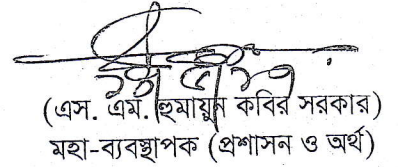 (এস. এম. হুমায়ুন কবির সরকার)
মহা-ব্যবস্থাপক (প্রশাসন ও অর্থ)